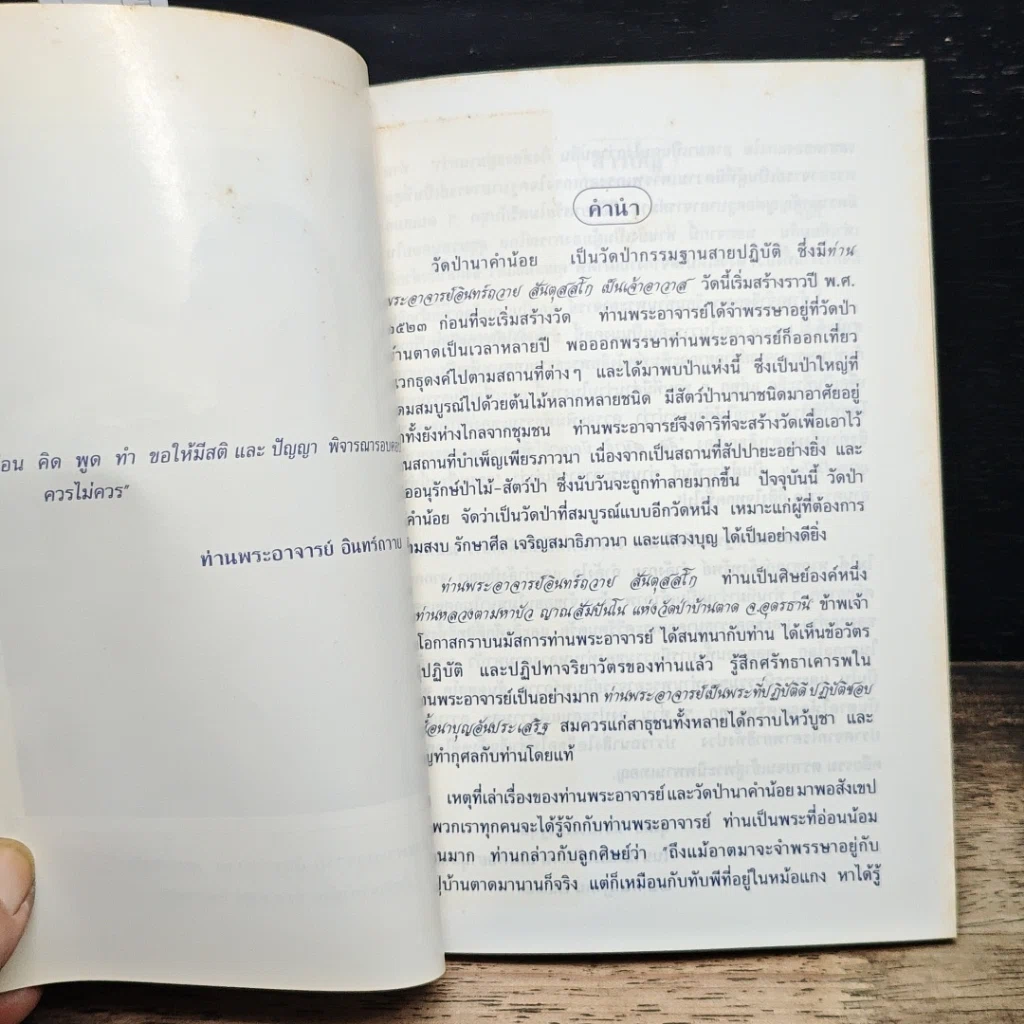 คิด พูด ทำ ขอให้มีสติ และ ปัญญา พิจารณารอบคอบ
ควรไม่ควร"
ท่านพระอาจารย์ อินทร์ถวาย
คำนำ
วัดป่านาคำน้อย เป็นวัดป่ากรรมฐานสายปฏิบัติ ซึ่งมีท่าน
พระอาจารย์อินทร์ถวาย สันตุสสโก เป็นเจ้าอาวาส วัดนี้เริ่มสร้างราวปี พ.ศ.
๒๕๒๓ ก่อนที่จะเริ่มสร้างวัด ท่านพระอาจารย์ได้จำพรรษาอยู่ที่วัดป่า
บ้านตาดเป็นเวลาหลายปี พอออกพรรษาท่านพระอาจารย์ก็ออกเที่ยว
วิเวกธุดงค์ไปตามสถานที่ต่างๆ และได้มาพบป่าแห่งนี้ ซึ่งเป็นป่าใหญ่ที่
อุดมสมบูรณ์ไปด้วยต้นไม้หลากหลายชนิด มีสัตว์ป่านานาชนิดมาอาศัยอยู่
ทั้งยังห่างไกลจากชุมชน ท่านพระอาจารย์จึงดำริที่จะสร้างวัดเพื่อเอาไว้
เป็นสถานที่บำเพ็ญเพียรภาวนา เนื่องจากเป็นสถานที่สัปปายะอย่างยิ่ง และ
เพื่ออนุรักษ์ป่าไม้-สัตว์ป่า ซึ่งนับวันจะถูกทำลายมากขึ้น ปัจจุบันนี้ วัดป่า
นาคำน้อย จัดว่าเป็นวัดป่าที่สมบูรณ์แบบอีกวัดหนึ่ง เหมาะแก่ผู้ที่ต้องการ
ความสงบ รักษาศีล เจริญสมาธิภาวนา และแสวงบุญ ได้เป็นอย่างดียิ่ง
ท่านพระอาจารย์อินทร์ถวาย สันตุสสโก ท่านเป็นศิษย์องค์หนึ่ง
ท่านหลวงตามหาบัว ญาณสัมปันโน แห่งวัดป่าบ้านตาด จ.อุดรธานี ข้าพเจ้า
โอกาสกราบนมัสการท่านพระอาจารย์ ได้สนทนากับท่าน ได้เห็นข้อวัตร
ปฏิบัติ และปฏิปทาจริยาวัตรของท่านแล้ว รู้สึกศรัทธาเคารพใน
ท่านพระอาจารย์เป็นอย่างมาก ท่านพระอาจารย์เป็นพระที่ปฏิบัติดีปฏิบัติชอบ
เนื้อนาบุญอันประเสริฐ สมควรแก่สาธุชนทั้งหลายได้กราบไหว้บูชา และ
ทำกุศลกับท่านโดยแท้
เหตุที่เล่าเรื่องของท่านพระอาจารย์ และวัดป่านาคำน้อย มาพอสังเขป
พวกเราทุกคนจะได้รู้จักกับท่านพระอาจารย์ ท่านเป็นพระที่อ่อนน้อม
มาก ท่านกล่าวกับลูกศิษย์ว่า "ถึงแม้อาตมาจะจำพรรษาอยู่กับ
บ้านตาดมานานก็จริง แต่ก็เหมือนกับทัพพีที่อยู่ในหม้อแกง หาได้รู้